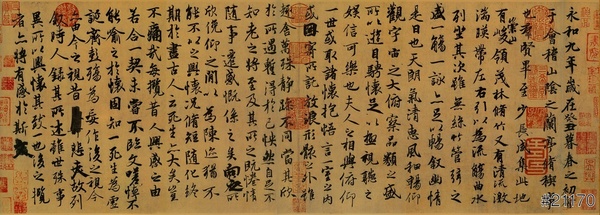 永和九年歲在癸丑暮春之初會
于會稽山陰之蘭亭脩禊事
也羣賢畢至少長咸集此地
有崇山峻領茂林脩竹又有清流激
湍暎帶左右引以為流觴曲水
列坐其次雖無絲竹管弦之
盛一觴一詠亦足以暢敘幽情
是日也天朗氣清惠風和暢仰
觀宇宙之大俯察品類之盛
所以遊目騁懷足以極視聽之
娛信可樂也夫人之相與俯仰
一世或取諸懷抱悟言一室之內
或因寄所託放浪形骸之外雖
趣舍萬殊靜躁不同當其欣
於所遇蹔得於己怏然自足不
知老之將至及其所之既惓情
隨事遷感慨係之矣向之所
欣俛仰之閒以為陳迹猶不
能不以之興懷況脩短隨化終
期於盡古人云死生亦大矣豈
不痛哉每攬昔人興感之由
若合一契未嘗不臨文嗟悼不
能喻之於懷固知一死生為虛
誕齊彭殤為妄作後之視今
亦由今之視昔悲夫故列
敘時人錄其所述雖世殊事
異所以興懷其致一也後之攬
者亦將有感於斯文
#21170